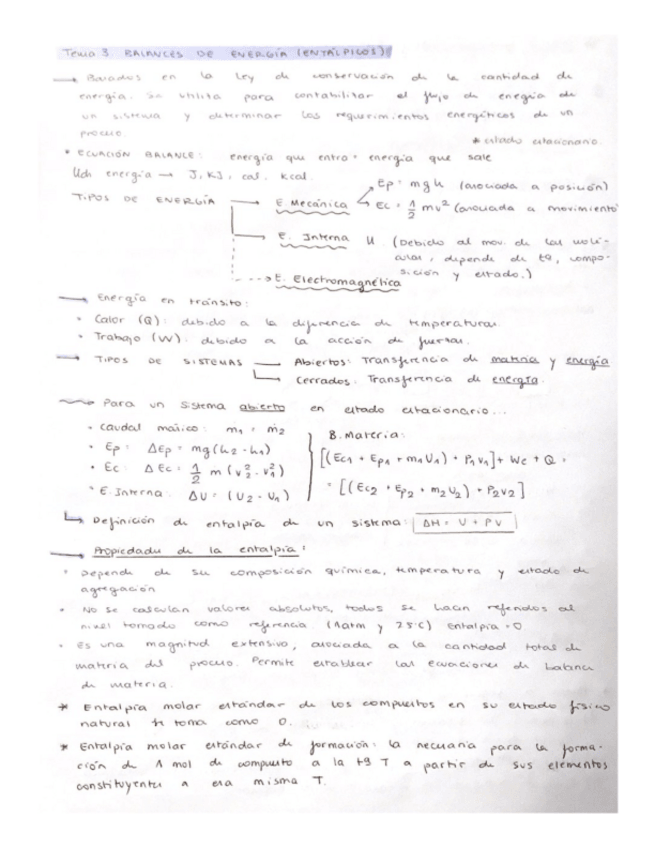 Tema 3. BALANCES DE ENERGÍA (ENTÁLPICOS)
→ Basados en la ley de conservación de la cantidad de
energía. Se utiliza para contabilizar el flujo de energía de
un sistema y determinar los requerimientos energéticos de un
proceso.
* estado estacionario.
* ECUACIÓN BALANCE: energía que entra = energía que sale
Uds energía → J, KJ, cal, kcal.
TIPOS DE ENERGÍA
E. Mecánica
Ep = mgh (asociada a posición)
Ec = 1/2 mv² (asociada a movimiento
E. Interna U (Debido al mov. de las molé-
culas, depende de tª, compo-
sición y estado.)
E. Electromagnética
→ Energía en tránsito:
• Calor (Q): debido a la diferencia de temperaturas.
• Trabajo (W): debido a la acción de fuerzas.
→ TIPOS DE SISTEMAS
Abiertos: Transferencia de materia y energía
Cerrados: Transferencia de energía.
→ Para un sistema abierto en estado estacionario...
• Caudal másico: m₁ = m₂
• Ep: ΔEp = mg(h₂ - h₁)
• Ec: ΔEc = 1/2 m (v₂² - v₁²)
• E. Interna: ΔU = (U₂ - U₁)
B. Materia:
[(Ec₁ + Ep₁ + m₁U₁) + P₁V₁] + Wc + Q =
= [(Ec₂ + Ep₂ + m₂U₂) + P₂V₂]
Definición de entalpía de un sistema: ΔH = U + PV
→ Propiedades de la entalpía:
• Depende de su composición química, temperatura y estado de
agregación
• No se calculan valores absolutos, todos se hacen referidos al
nivel tomado como referencia. (1atm y 25ºC) Entalpía = 0
• Es una magnitud extensiva, asociada a la cantidad total de
materia del proceso. Permite establecer las ecuaciones de balance
de materia.
* Entalpía molar estándar de los compuestos en su estado físico
natural se toma como 0.
* Entalpía molar estándar de formación: la necesaria para la forma-
ción de 1 mol de compuesto a la tª T a partir de sus elementos
constituyentes a esa misma T.